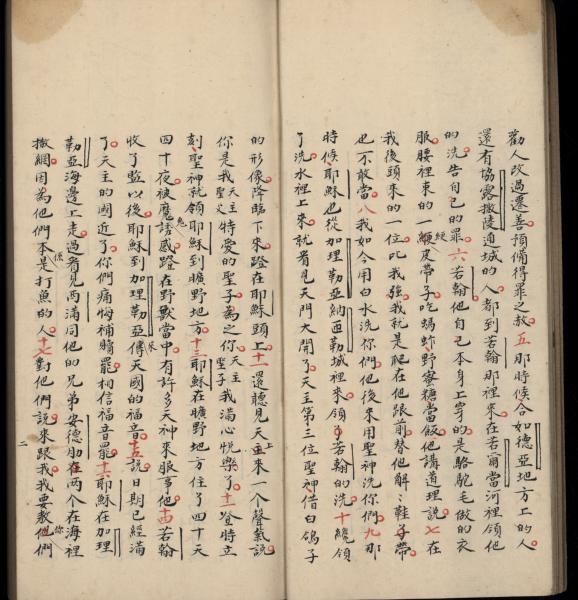 勸人改過遷善預備得罪之赦五那時候仝如德亞地方上的人
還有協露撒陵通城的人都到若翰那裡來在若爾當河裡領他
的洗告自己的罪六若翰他自己本身上穿的是駱駝毛做的衣
服腰裡束的一條皮帶子吃螞蚱野蜜糖當飯他講道理說七在
我後頭來的一位比我強我就是爬在他跟前替他解解鞋子帶
也不敢當八我如今用白水洗你們他後來用聖神洗你們九那
時候耶穌也從加理勒亞納匝勒城裡來領了若翰的洗十纔領
了洗水裡上來就看見天門大開了天主第三位聖神借白鴿子
的形像降臨下來蹬在耶穌頭上十一還聽見天上來一个聲氣說
你是我天主聖父特愛的聖子為之你天主聖子我滿心悅樂了十二登時立
刻聖神就領耶穌到曠野地方十三耶穌在曠野地方住了四十天
四十夜被魔鬼誘感蹬在野獸當中有許多天神來服事他十四若翰
收了監以後耶穌到加理勒亞來傳天國的福音十五說日期已經滿
了天主的國近了你們痛悔補贖罷相信福音罷十六耶穌在加理
勒亞海邊上走過看見西滿同他的兄弟安德肋在两个在海裡
撒網因為他們本係是打魚的人十七對他們說來跟我我要教你他們
二